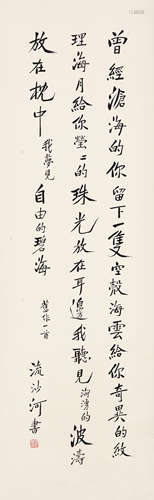 曾經滄海的你留下一隻空殼海雲給你奇異的紋
理海月給你瑩瑩的珠光放在耳邊我聽見洶湧的波濤
放在枕中我夢見自由的碧海
舊作一首
流沙河書